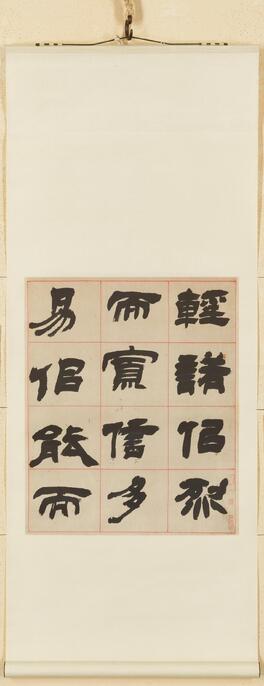 輕諾佀烈
而寡信多
易佀能而